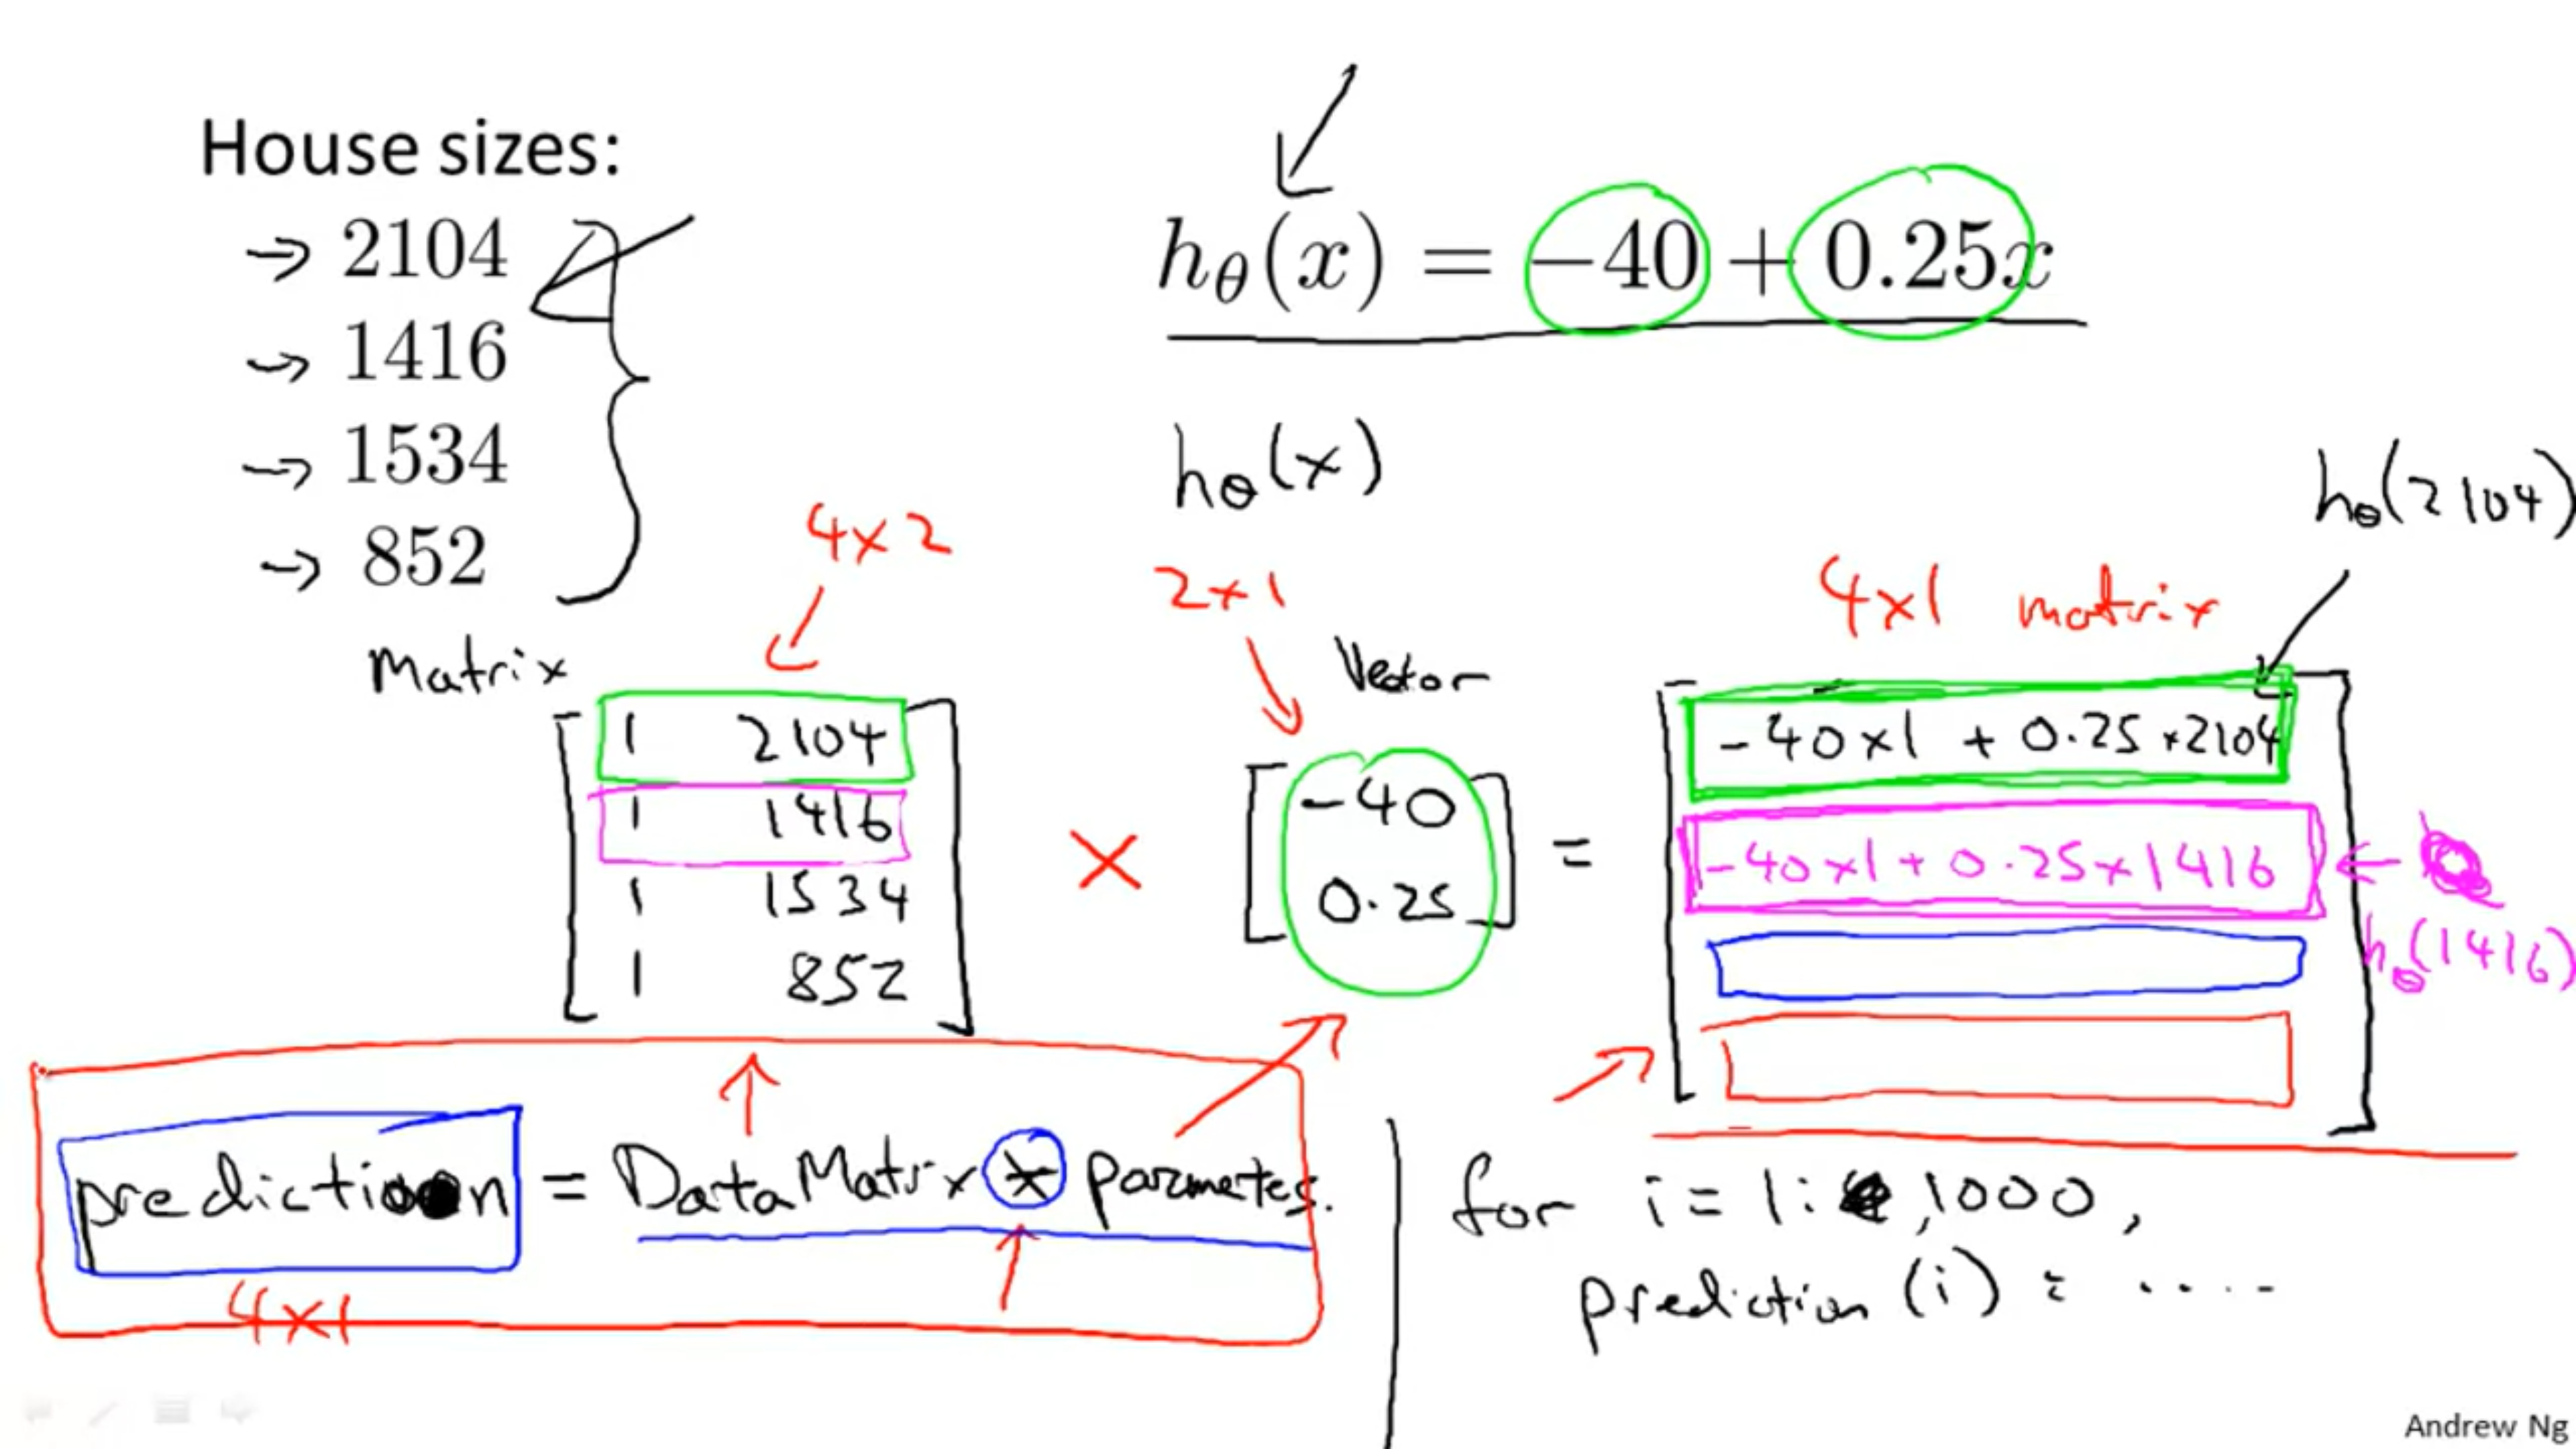 House sizes:
→ 2104
→ 1416
→ 1534
→ 852
hθ(x) = −40 + 0.25x
hθ(x)
hθ(2104)
4x2
2x1
4x1 matrix
Matrix
Vector
1 2104
1 1416
1 1534
1 852
×
-40
0.25
=
-40x1 + 0.25x2104
-40x1 + 0.25x1416
← hθ(1416)
prediction = DataMatrix * parametes.
4x1
for i = 1: ,1000,
prediction (i) = ....
Andrew Ng